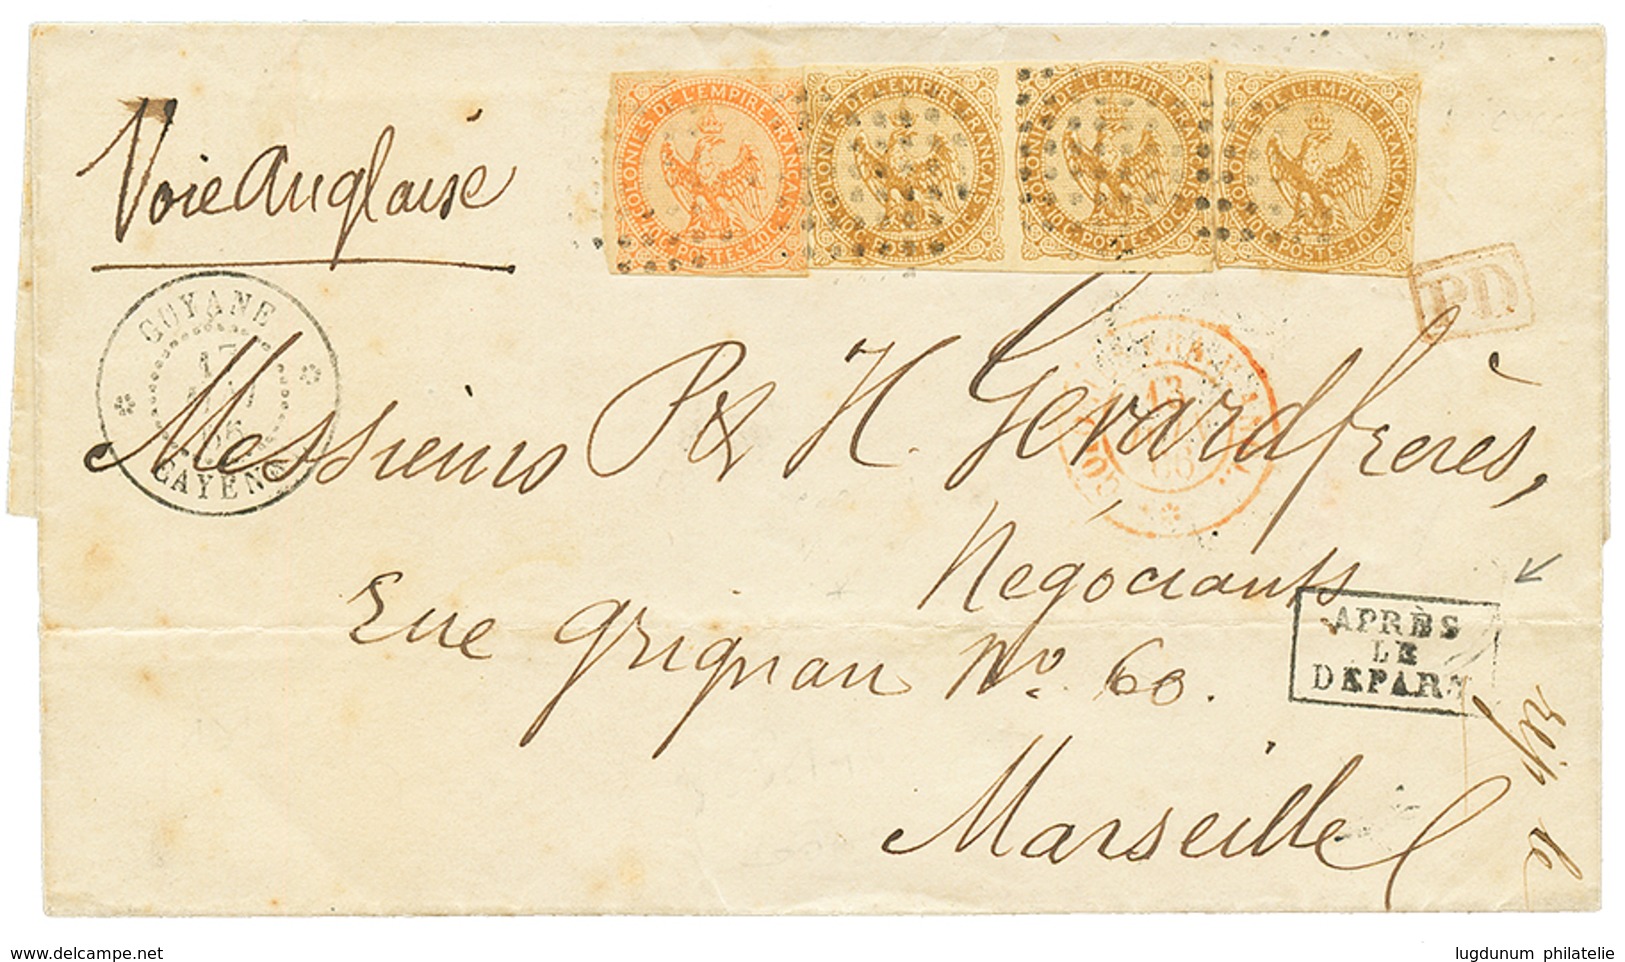 Voie Anglaise
COLONIES DE L'EMPIRE FRANÇAIS
40C. POSTES. 40C.
COLONIES DE L'EMPIRE FRANÇAIS
10C. POSTES. 10C.
COLONIES DE L'EMPIRE FRANÇAIS
10C. POSTES. 10C.
COLONIES DE L'EMPIRE FRANÇAIS
10C. POSTES. 10C.
PD
GUYANE
17
66
CAYENNE
13
66
Messieurs P & H. Gévard frères,
Négociants
Rue Grignan No. 60.
APRÈS
LE
DEPART
Marseille
rép le
www.delcampe.net
lugdunum philatelie